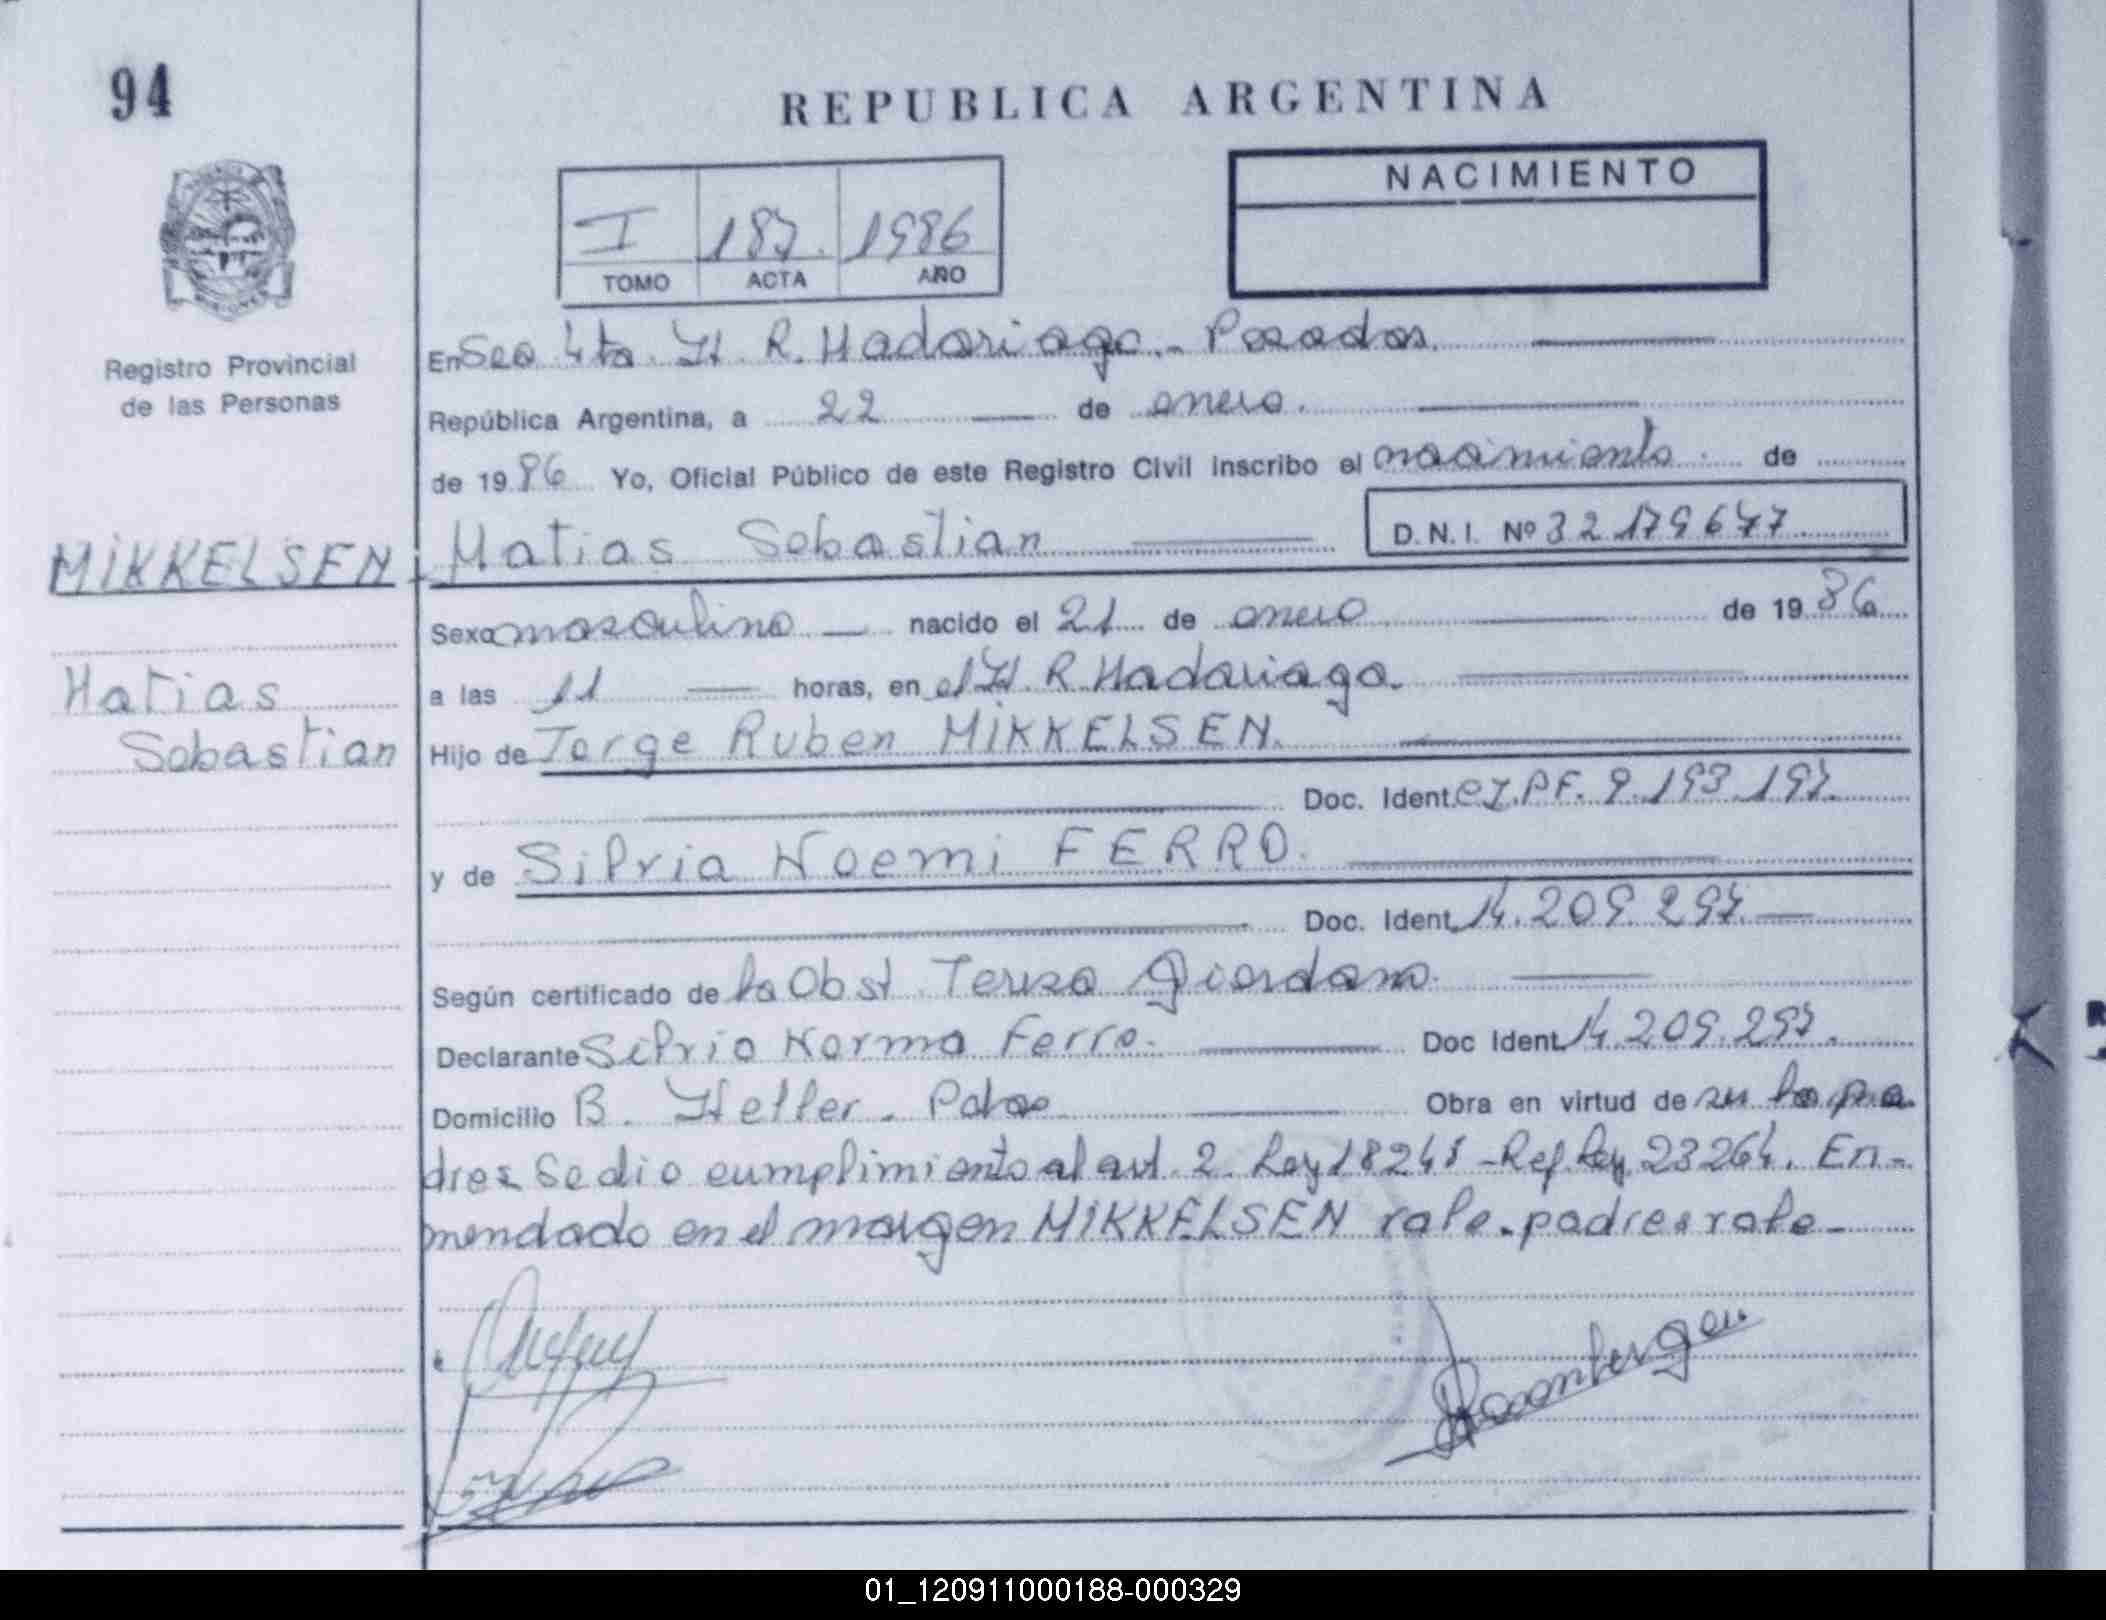 94
REPUBLICA ARGENTINA
NACIMIENTO
I 187. 1986
TOMO ACTA AÑO
Registro Provincial
de las Personas
En Sec 4ta. H. R. Madariaga.- Posadas.
República Argentina, a 22 de enero.
de 1986 Yo, Oficial Público de este Registro Civil inscribo el nacimiento de
MIKKELSEN - Matias Sebastian D.N.I. Nº 32 179 647
Sexo masculino nacido el 21 de enero de 1986
Matias
Sebastian
a las 11 horas, en el H. R. Madariaga.
Hijo de Jorge Ruben MIKKELSEN.
Doc. Ident. CI.PF. 9.193.197.
y de Silvia Noemi FERRO.
Doc. Ident. 14.209.297.
Según certificado de la Obst Teresa Giordano.
Declarante Silvia Norma Ferro. Doc Ident. 14.209.297.
Domicilio B. Heller. Pdas Obra en virtud de ser los pa
dres Se dio cumplimiento al art. 2 Ley 18248 - Ref. Ley 23264. En-
mendado en el margen MIKKELSEN vale. padres vale-
01_120911000188-000329